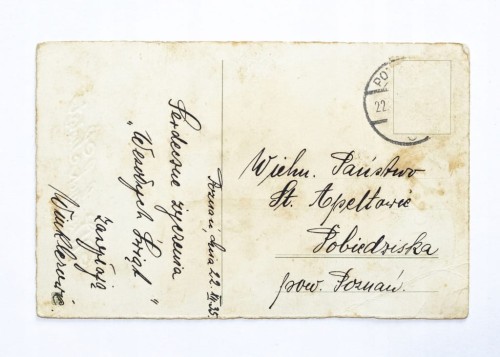 Poznań, dnia 22.XII.35
Serdeczne życzenia
„Wesołych Świąt"
zasyłają
Winklerowie.
Wielm. Państwo
St. Apeltowie
Pobiedziska
pow. Poznań.
PO
22.